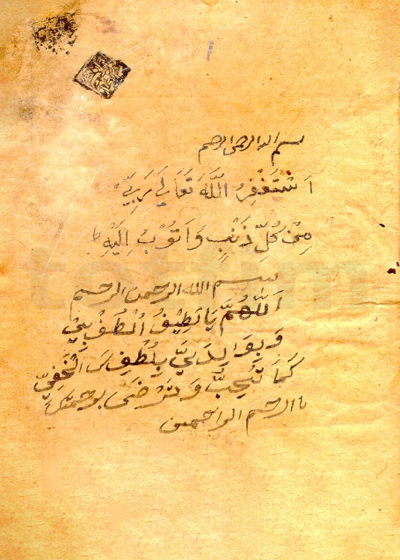 بسم الله الرحمن الرحيم
اَسْتَغْفِرُ اللَّهَ تَعَالَى رَبِّي
مِنْ كُلِّ ذَنْبٍ وَاَتُوْبُ اِلَيْهِ
بسم الله الرحمن الرحيم
اَللّٰهُمَّ يَا لَطِيْفُ اُلْطُفْ بِيْ
وَبِوَالِدَيَّ بِلُطْفِكَ الْخَفِيِّ
كَمَا تُحِبُّ وَتَرْضَى برحمتك
يا ارحم الراحمين